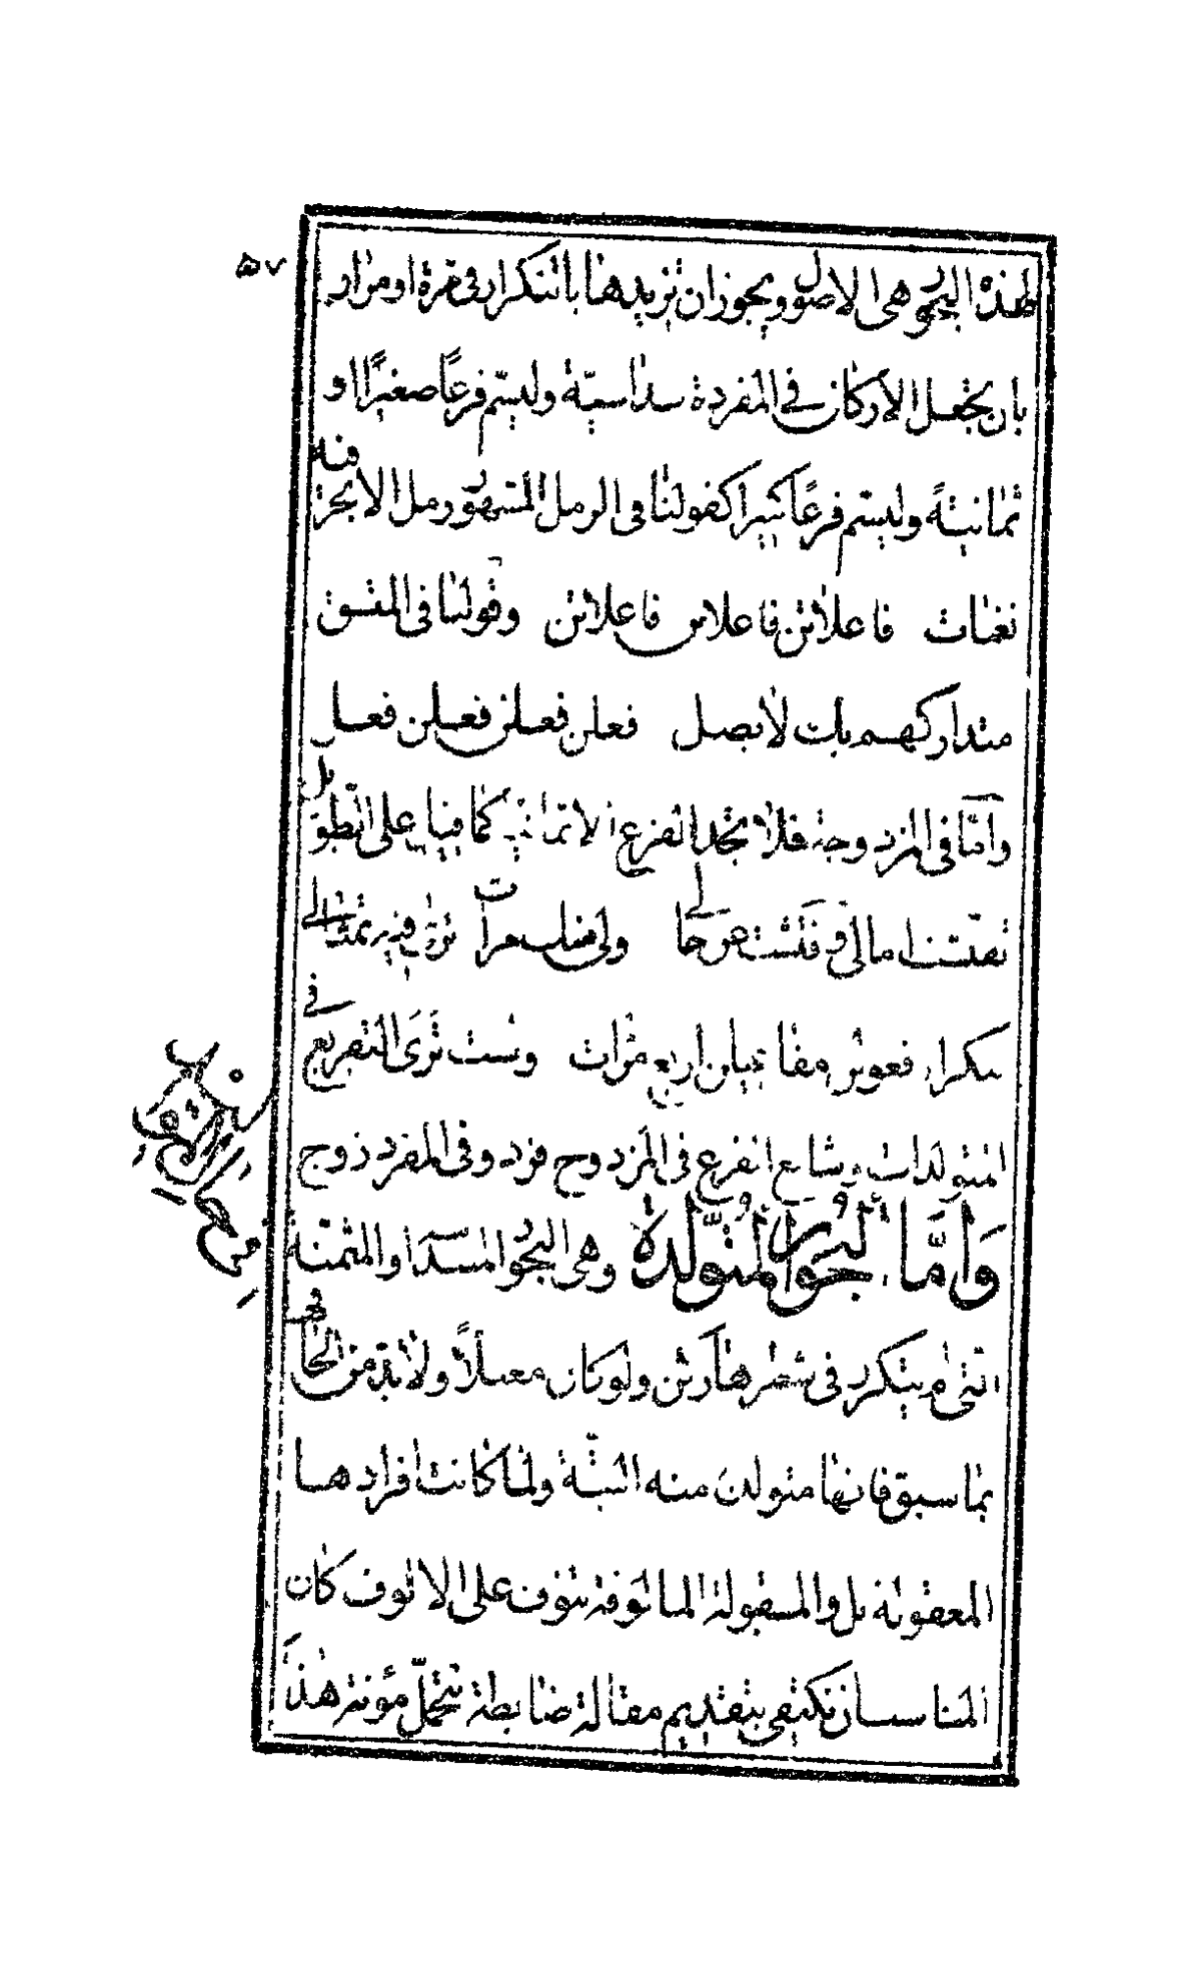 ٥٧
لهذه البحور هى الاصول ويجوز ان تزيدها بالتكرار فى مرة او مرار
بان تجعل الاركان فى المفردة سداسيّة وليسم فرعًا صغيرًا او
ثمانيةً وليسم فرعًا كثيرا كقولنا فى الرمل المشهور رمل الابحر فيه
نغمات فاعلاتن فاعلاتن فاعلاتن وقولنا فى المتسق
متداركهم بات لا يصل فعلن فعلن فعلن فعل
وامّا فى المزدوجة فلا تجد الفرع الا ثمانية كما فى على الطويل
تفتشنا مالى وفتشت عن حالى مرات ترى فيه تمثالى
تكرار فعولن مفاعيلن اربع مرّات ولست ترَى التفريع فى
المتولدات وشاع الفرع فى المزدوج فرد وفى المفرد زوج
وَامَّا البُحُور المُتوَلّدة وهى البحور المسدسة والمثمنة
التى لم يتكرر فى شطرها ركن ولو كان معتلًا ولا بدّ من الحاقها
بما سبق فانها متولدة منه البتّة ولما كانت افرادها
المعقولة بل والمقبولة المألوفة تنوف على الالوف كان
المناسب ان نكتفى بتقديم مقالة ضابطة تتحمّل مؤنة هذا